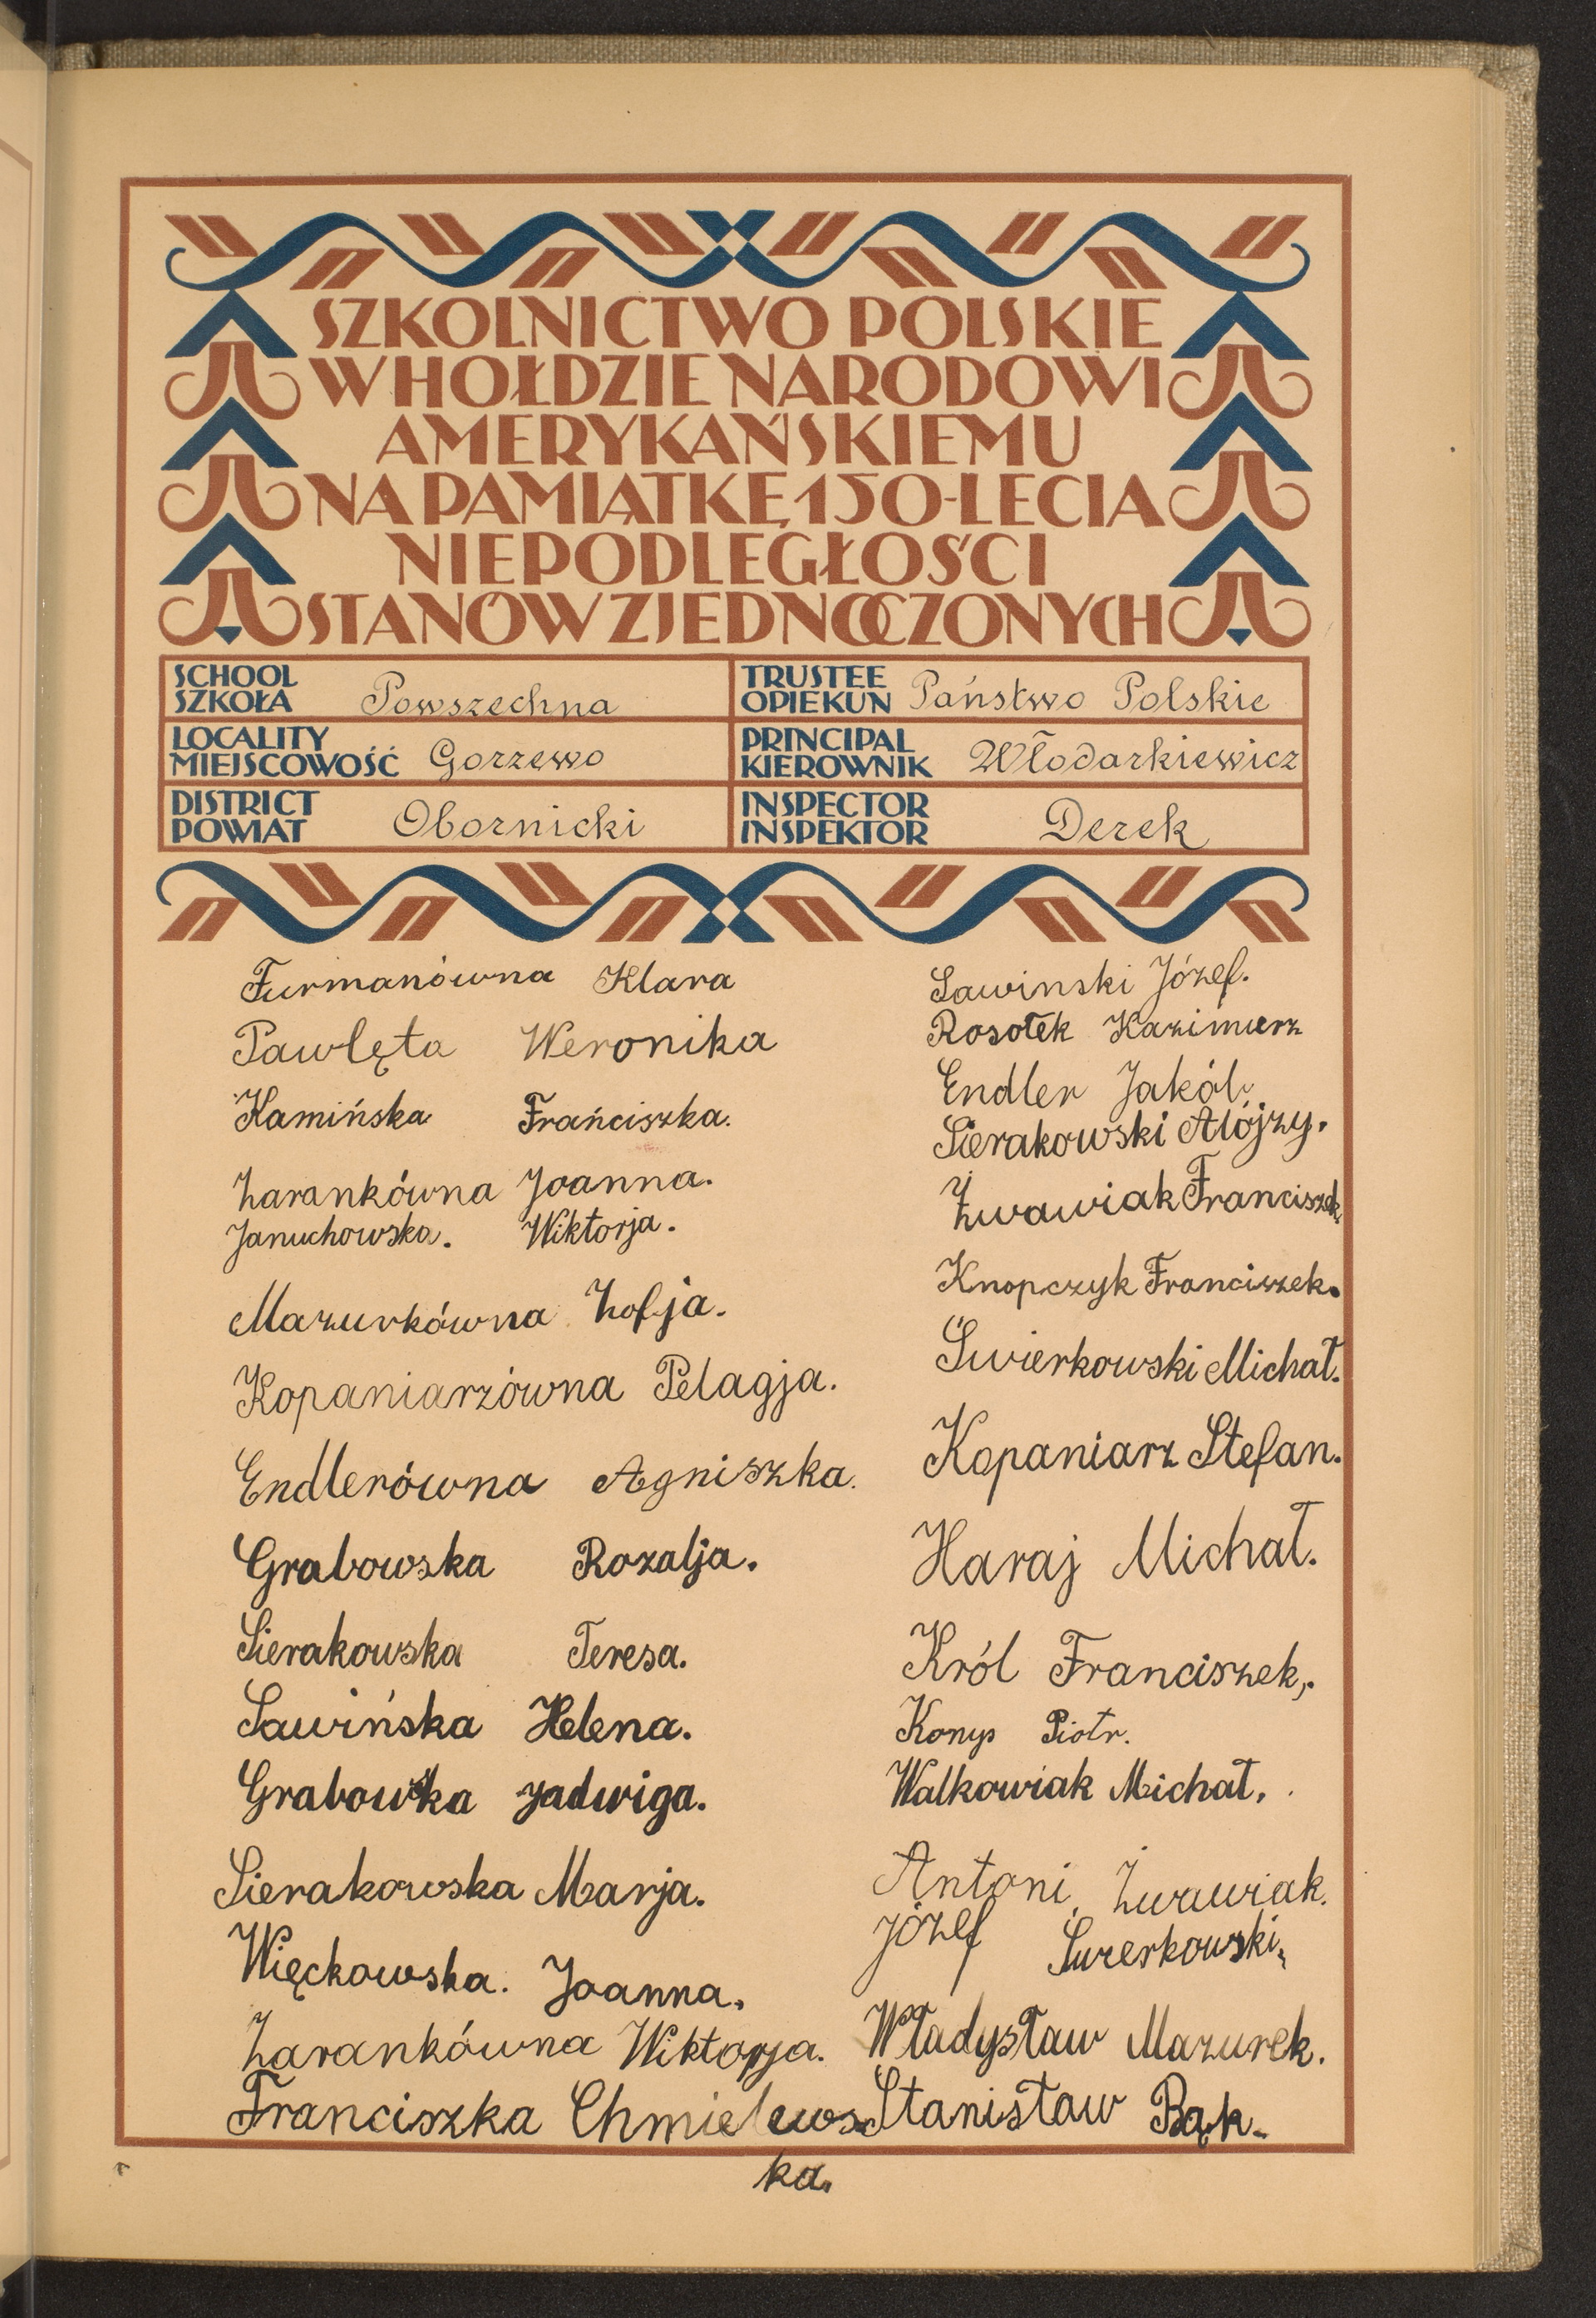 SZKOLNICTWO POLSKIE
W HOŁDZIE NARODOWI
AMERYKAŃSKIEMU
NA PAMIĄTKĘ 150-LECIA
NIEPODLEGŁOŚCI
STANÓW ZJEDNOCZONYCH
SCHOOL
SZKOŁA Powszechna
TRUSTEE
OPIEKUN Państwo Polskie
LOCALITY
MIEJSCOWOŚĆ Gorzewo
PRINCIPAL
KIEROWNIK Włodarkiewicz
DISTRICT
POWIAT Obornicki
INSPECTOR
INSPEKTOR Derek
Furmanówna Klara
Pawlęta Weronika
Kamińska Frańciszka.
Zarankówna Joanna.
Januchowska. Wiktorja.
Mazurkówna Zofja.
Kopaniarzówna Pelagja.
Endlerówna Agniszka.
Grabowska Rozalja.
Sierakowska Teresa.
Sawińska Helena.
Grabowska Jadwiga.
Sierakowska Marja.
Więckowska. Joanna.
Zarankówna Wiktorja.
Franciszka Chmielews
ka.
Sawinski Józef.
Rosołek Kazimierz
Endler Jakób.
Sierakowski Alojzy.
Żwawiak Franciszek.
Knopczyk Franciszek.
Świerkowski Michał.
Kopaniarz Stefan.
Haraj Michał.
Król Franciszek,.
Konys Piotr.
Walkowiak Michał.
Antoni Żwawiak.
Józef Świerkowski,
Władysław Mazurek.
Stanisław Bąk.